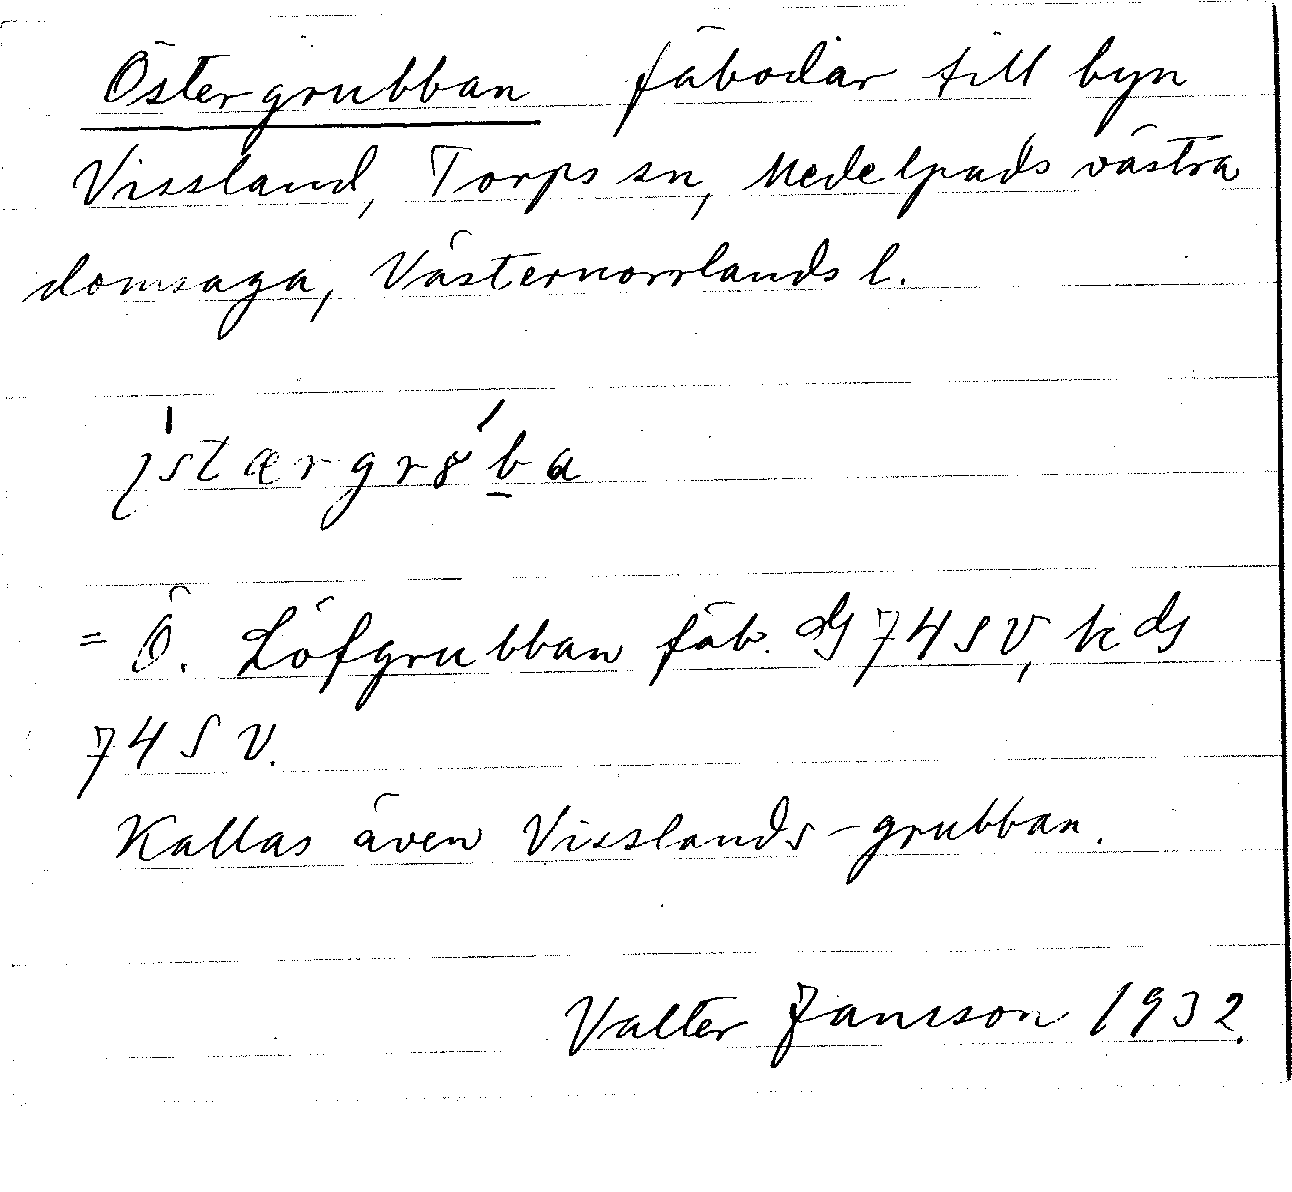 Östergrubban fäbodar till byn
Vissland, Torps sn, Medelpads västra
domsaga, Västernorrlands l.
= Ö. Löfgrubban fäb. GS 74 SV, k GS
74 SV.
Kallas även Visslands-grubban.
Valter Jansson 1932.